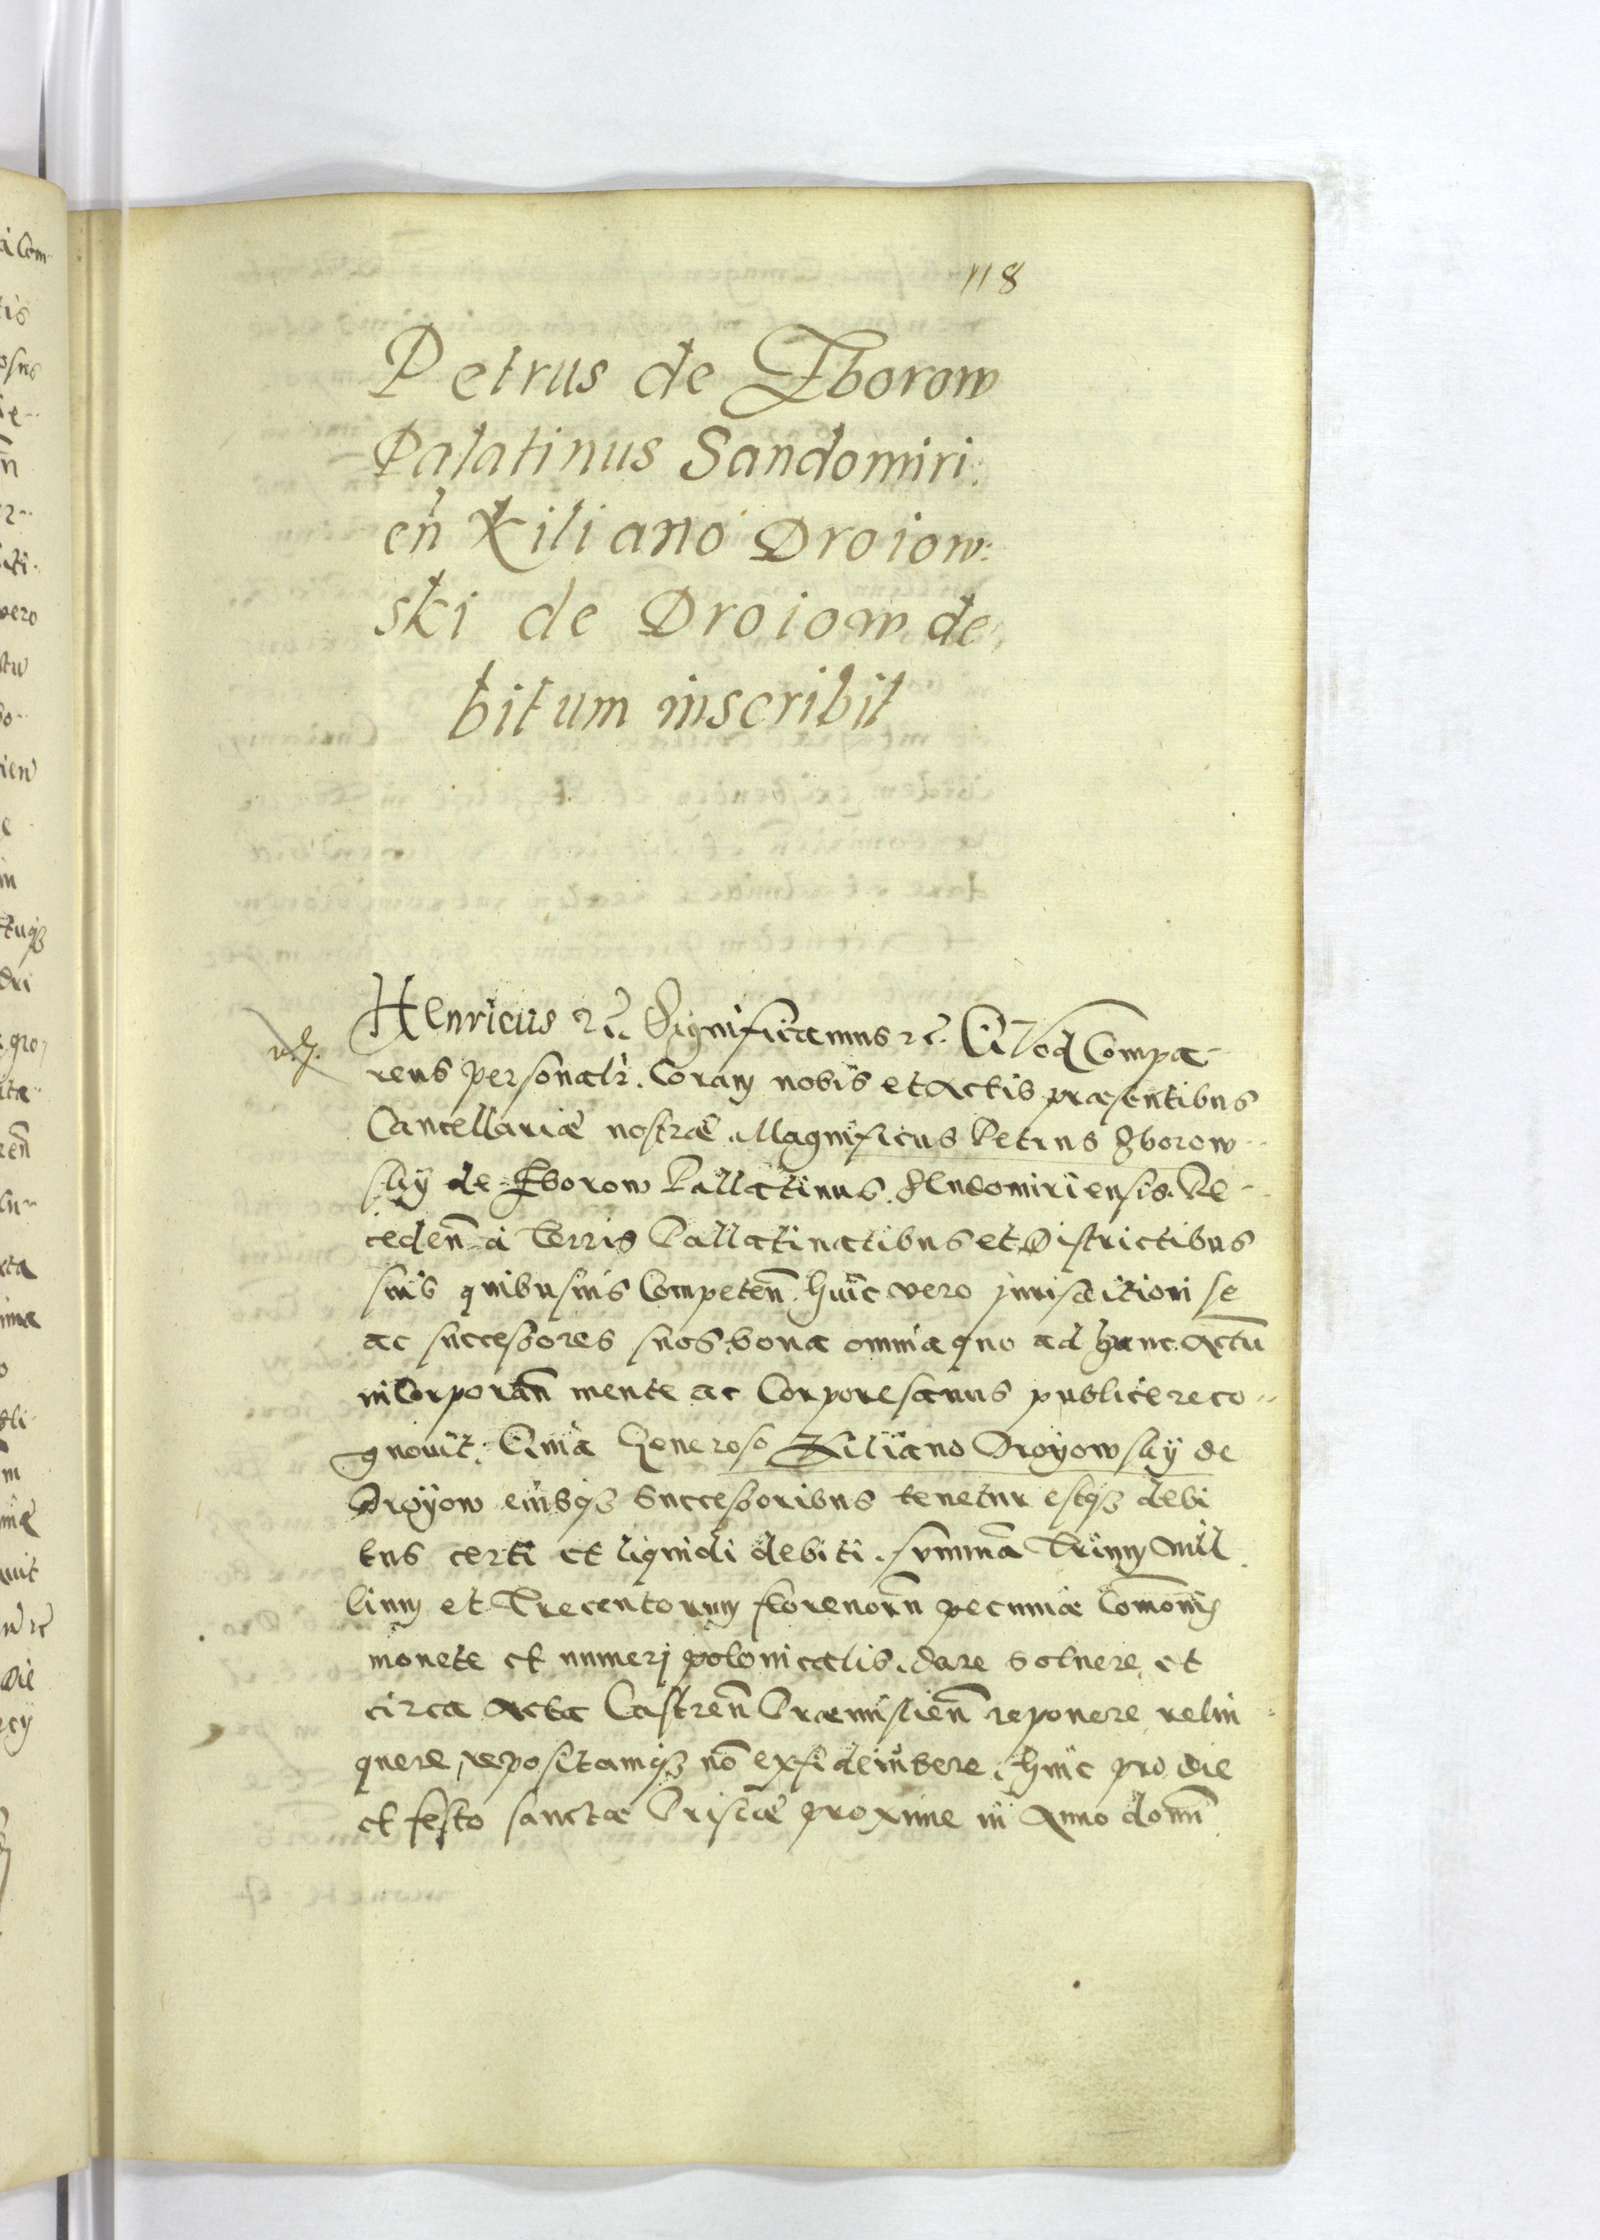 118
Petrus de Zborow
Palatinus Sandomiri:
eñ Kiliano Droiow:
ski de Droiow de
bitum inscribit
Henricus etc. Significamus etc. Quod Compa-
rens personalr. Coram nobis et Actis præsentibus
Cancellariæ nostræ. Magnificus Petrus Zborow-
sky de Zborow Pallatinus Sendomiriensis. Re-
cedeñ à Terris Pallatinatibus et Districtibus
suis quibusuis Competeñ. huic vero jurisditioni se
ac successores suos bona omnia quo ad hunc Actū
incorporañ mente ac Corpore sanus publice reco-
gnouit. Quia Generoso Kiliano Droyowsky de
Droyow eiusqz Successoribus tenetur estqz debi
tus certi et liquidi debiti. summā Trium Mil
lium et Trecentorum florenorū pecuniæ Com̄onis
monete et numerj polonicalis. dare soluere et
circa Acta Castreñ Præmislieñ reponere relin-
quere, repositamqz nō exfideiubere. huic pro die
et festo sanctæ Priscæ proxime in Anno domī